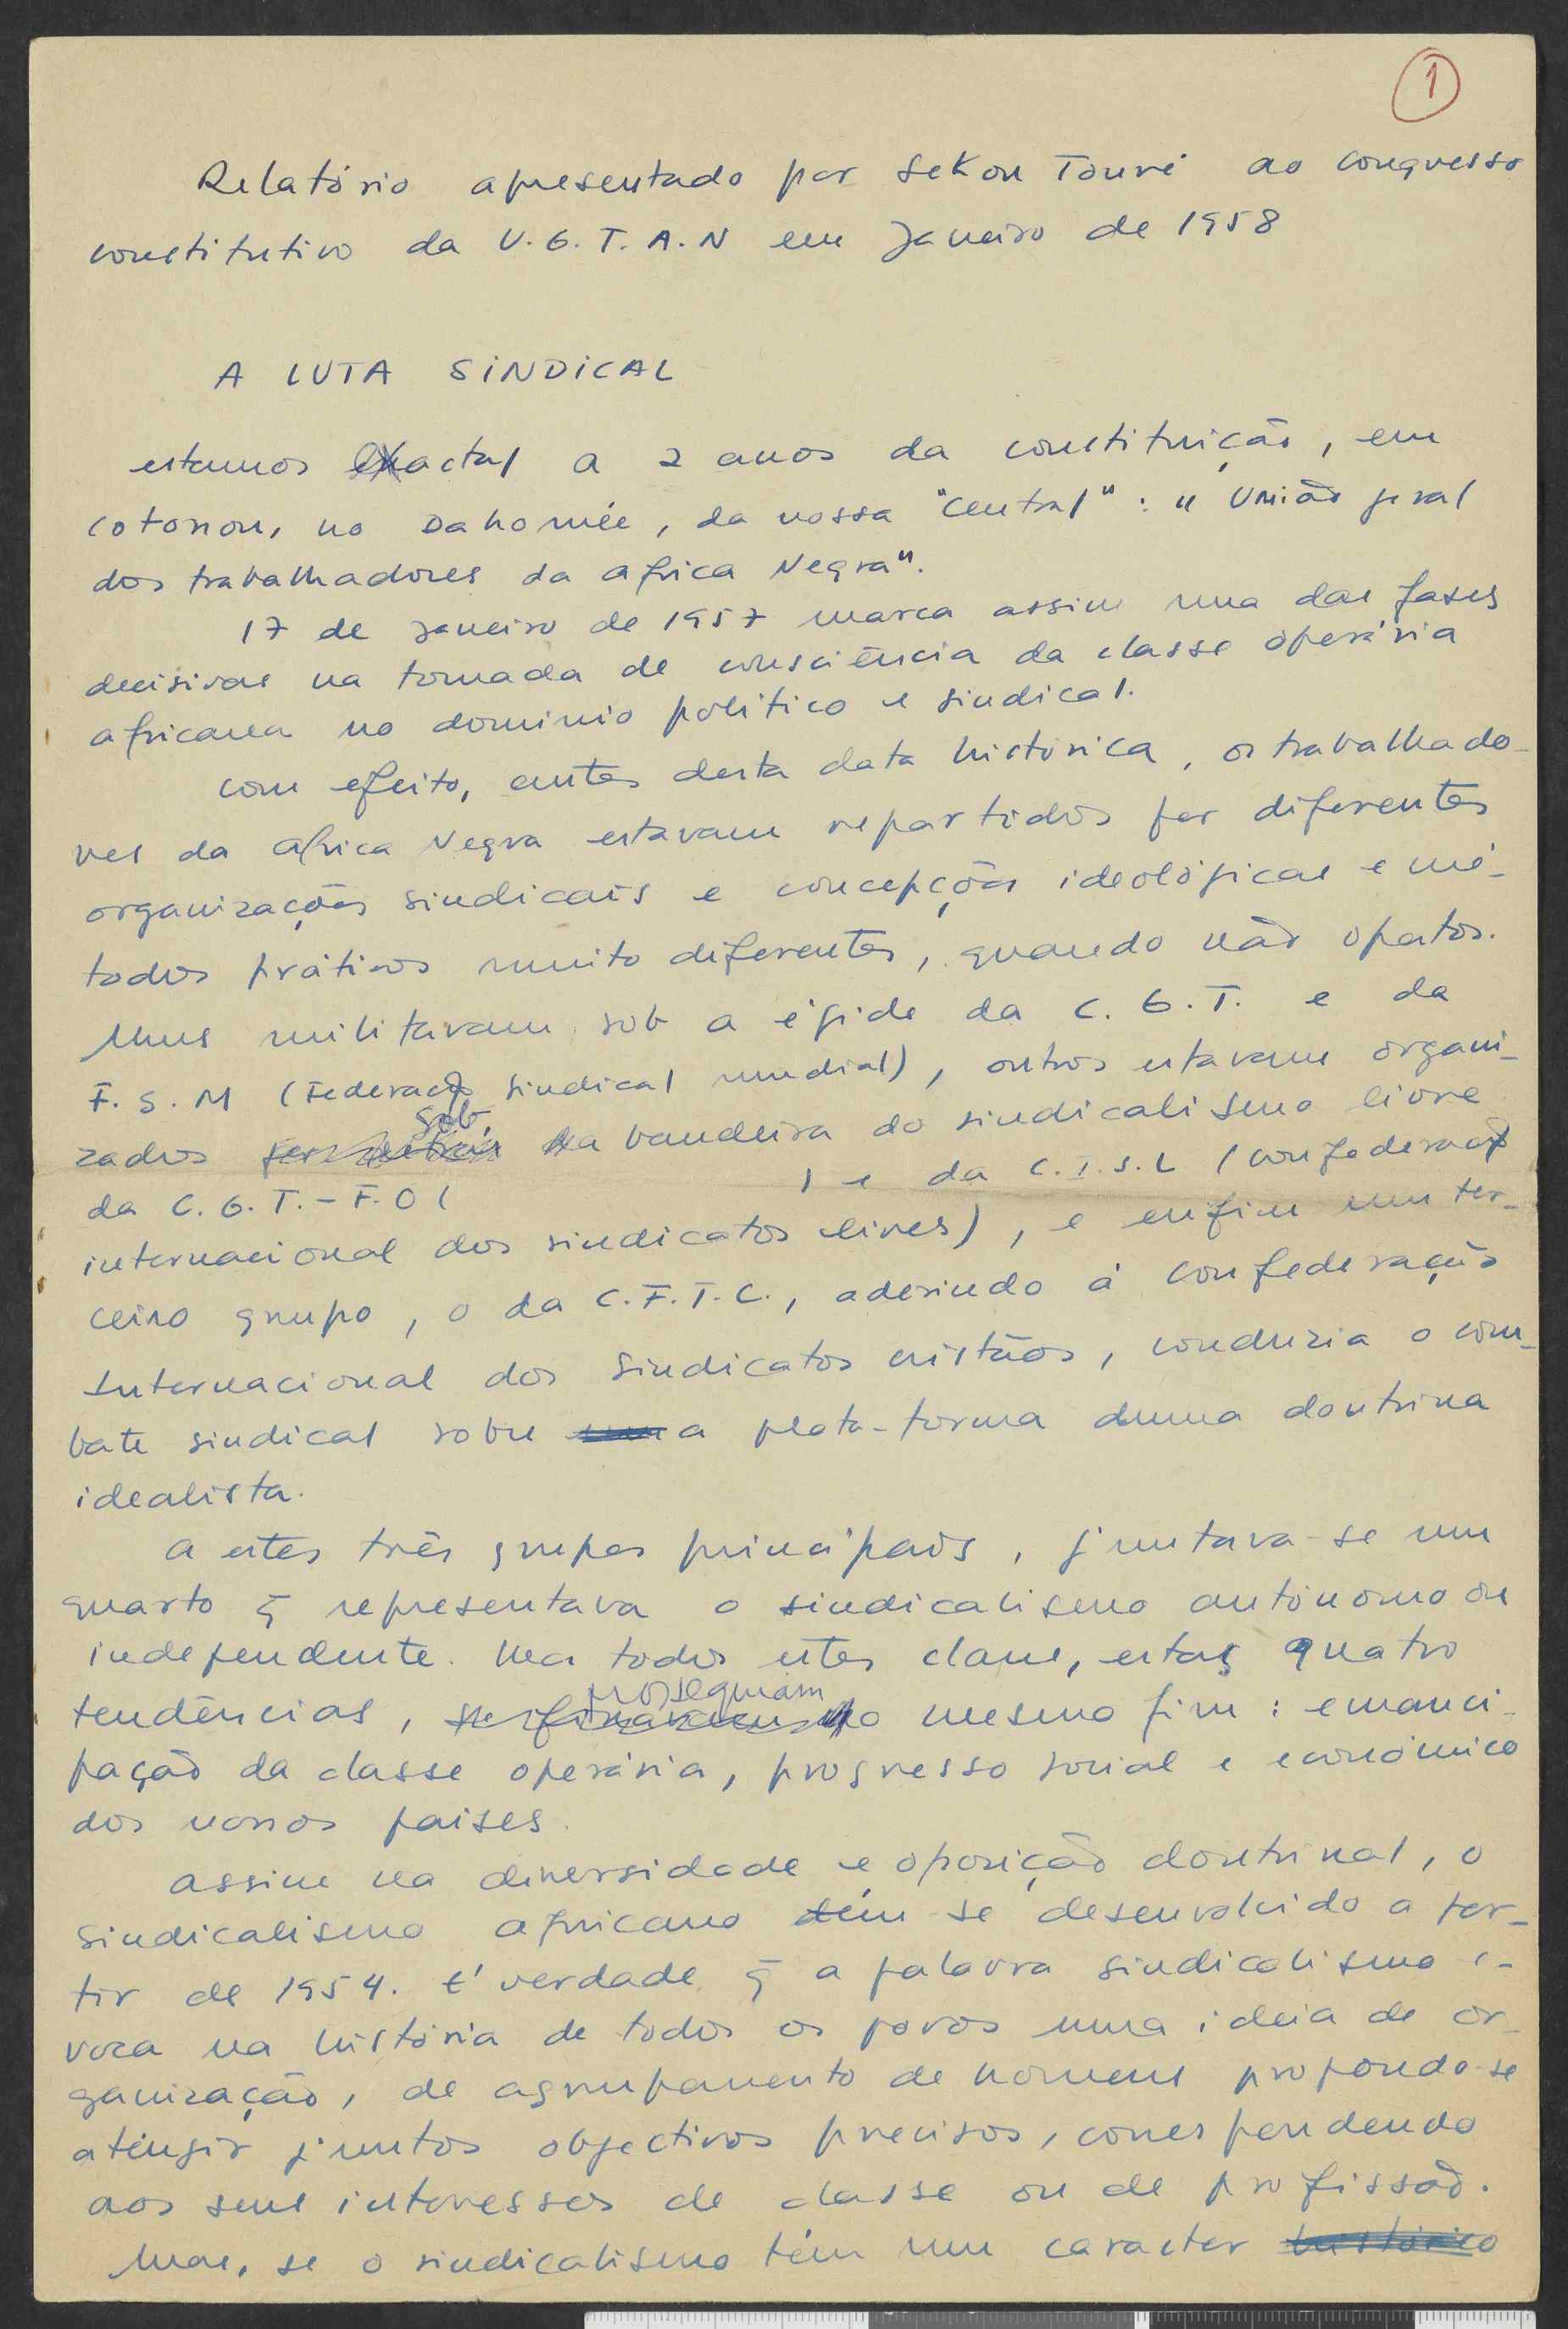 1
Relatório apresentado por Sekou Touré ao congresso
constitutivo da U.G.T.A.N em janeiro de 1958
A LUTA SINDICAL
estamos exactal a 2 anos da constituição, em
Cotonou, no Dahomée, da nossa "central": "União geral
dos trabalhadores da africa Negra".
17 de janeiro de 1957 marca assim uma das fases
decisivas na tomada de consciência da classe operária
africana no dominio político e sindical.
com efeito, antes desta data histórica, os trabalhado-
res da africa Negra estavam repartidos por diferentes
organizações sindicais e concepções ideológicas e mé-
todos práticos muito diferentes, quando não opostos.
Uns militavam sob a égide da C.G.T. e da
F.S.M (Federação sindical mundial), outros estavam organi-
zados sob a bandeira do sindicalismo livre
da C.G.T.-F.O ( ) e da C.I.S.L (confederação
internacional dos sindicatos livres), e enfim um ter-
ceiro grupo, o da C.F.T.C., aderindo à confederação
Internacional dos Sindicatos cristãos, conduzia o com-
bate sindical sobre a plata-forma duma doutrina
idealista.
a estes três grupos principais, juntava-se um
quarto q̃ representava o sindicalismo autónomo ou
independente. Mas todos estes clans, estas quatro
tendências, prosseguiam o mesmo fim: emanci-
pação da classe operária, progresso social e económico
dos nossos paises.
assim na diversidade e oposição doutrinal, o
sindicalismo africano tém-se desenvolvido a par-
tir de 1954. É verdade q̃ a palavra sindicalismo e-
voca na história de todos os povos uma ideia de or-
ganização, de agrupamento de homens propondo-se
atingir juntos objectivos precisos, correspondendo
aos seus interesses de classe ou de profissão.
Mas, se o sindicalismo tém um caracter histórico